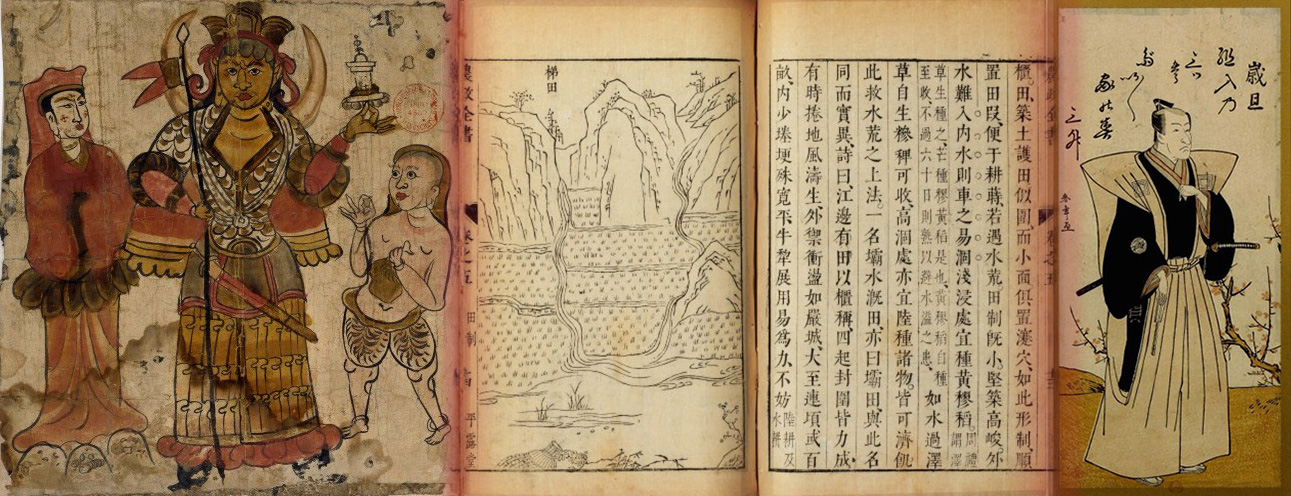 歳旦
三升
櫃田、築土護田似圍、而小面俱置瀽穴、如此形制、順
置田段、便于耕蒔、若遇水荒田制旣小堅築高峻、外
水難入內水則車之易涸淺浸處宜種黃穋稻。周禮謂澤
草生種之芒種穋黃稻是也、黃穋稻自種至收、不過六十日則熟以避水溢之患、如水過澤
草自生糝稗可收、高涸處亦宜陸種諸物、皆可濟飢
此救水荒之上法、一名壩水漑田、亦曰壩田、與此名
同而實異、詩曰江邊有田以櫃稱、四起封圍皆力成
有時捲地風濤生、外禦衝盪如嚴城、大至連頃或百
畝、內少塍埂殊寬平、牛犂展用易爲力、不妨陸耕及水耕
梯田
農政全書
卷之五
田制
平露堂